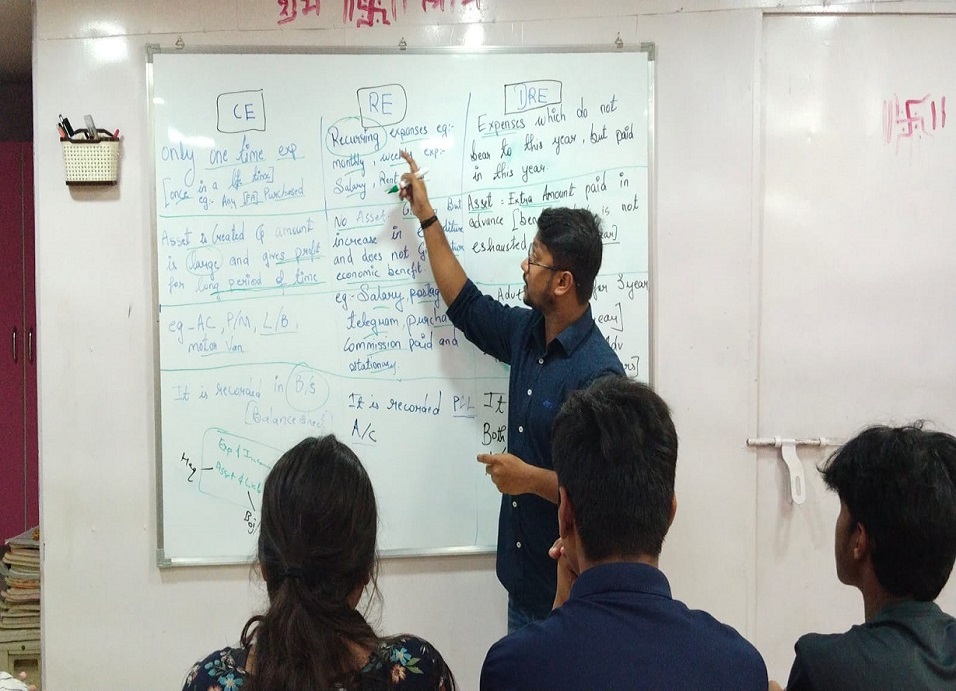 शुभ
CE
only one time exp
[once in a life time]
eg:- Any Purchased
Asset is Created & amount
is large and gives profit
for long period of time
eg - AC, P/M, L/B,
motor van
It is recorded in B/s
[Balance sheet]
Exp & Incom
Asset & Liab
RE
Recurring expenses eg:-
monthly, weekly exp:-
Salary, Rent
No Asset But
increase in
and does not
economic benefit.
eg:- Salary, postag
telegram, purcha
Commission paid and
stationary.
It is recorded P&L
A/c
DRE
Expenses which do not
bear to this year, but paid
in this year.
Asset = Extra Amount paid in
advance is not
exhausted
Adv 3 year
ear]
Adv
rs]
It
Both